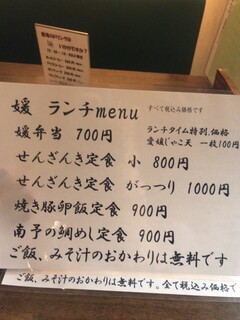 媛 ランチmenu
すべて税込み価格です
媛弁当 700円
ランチタイム特別価格
愛媛じゃこ天 一枚100円
せんざんき定食 小 800円
せんざんき定食 がっつり 1000円
焼き豚卵飯定食 900円
南予の鯛めし定食 900円
ご飯、みそ汁のおかわりは無料です
ご飯、みそ汁のおかわりは無料です。全て税込み価格で